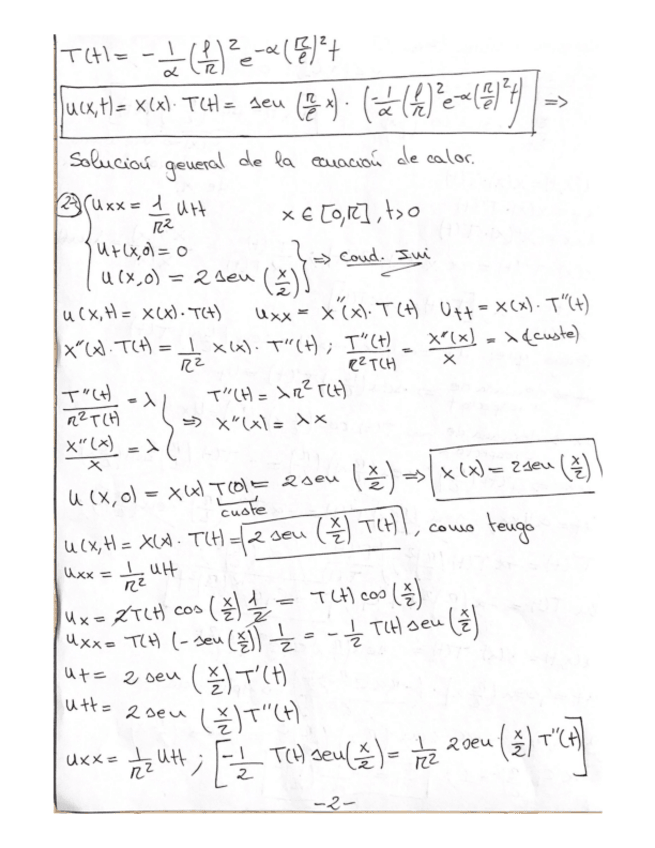 T(t) = - 1/α (l/π)² e^(-α(π/l)²t)
u(x,t) = X(x)·T(t) = sen (π/l x) · (-1/α (l/π)² e^(-α(π/l)²t)) ⇒
Solución general de la ecuación de calor.
2) { uxx = 1/π² utt     x ∈ [0,π], t>0
ut(x,0) = 0
u(x,0) = 2 sen (x/2) } ⇒ Cond. Ini
u(x,t) = X(x)·T(t)   uxx = X''(x)·T(t)   Utt = X(x)·T''(t)
X''(x)·T(t) = 1/π² X(x)·T''(t) ; T''(t)/π²T(t) = X''(x)/X = λ (custe)
T''(t)/π²T(t) = λ   T''(t) = λπ² T(t)
X''(x)/X = λ } ⇒ X''(x) = λX
u(x,0) = X(x) T(0) = 2 sen (x/2) ⇒ X(x) = 2 sen (x/2)
custe
u(x,t) = X(x)·T(t) = 2 sen (x/2) T(t) , como tengo
uxx = 1/π² utt
ux = 2T(t) cos (x/2) 1/2 = T(t) cos (x/2)
uxx = T(t) (-sen(x/2)) 1/2 = - 1/2 T(t) sen (x/2)
ut = 2 sen (x/2) T'(t)
utt = 2 sen (x/2) T''(t)
uxx = 1/π² utt ; [-1/2 T(t) sen(x/2) = 1/π² 2 sen (x/2) T''(t)]
-2-